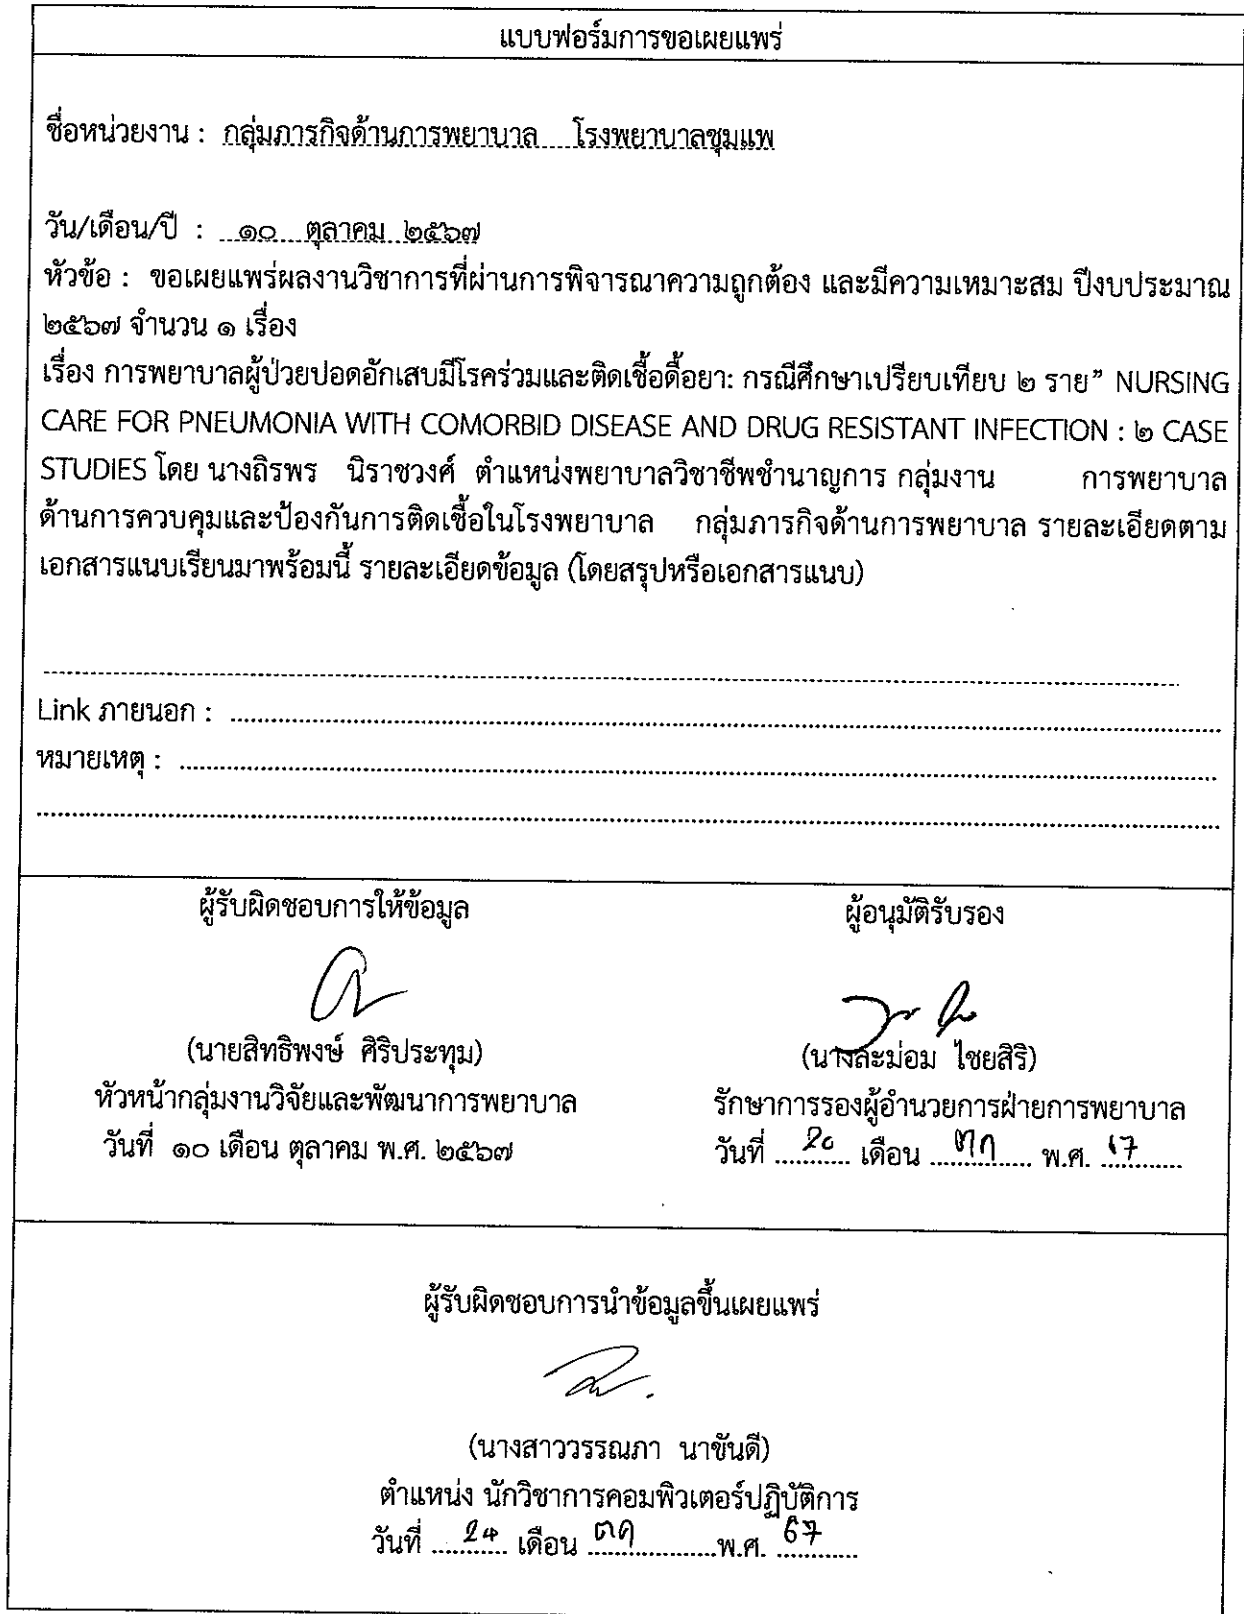 แบบฟอร์มการขอเผยแพร่
ชื่อหน่วยงาน : กลุ่มภารกิจด้านการพยาบาล โรงพยาบาลชุมแพ
วัน/เดือน/ปี : ๑๐ ตุลาคม ๒๕๖๗
หัวข้อ : ขอเผยแพร่ผลงานวิชาการที่ผ่านการพิจารณาความถูกต้อง และมีความเหมาะสม ปีงบประมาณ
๒๕๖๗ จำนวน ๑ เรื่อง
เรื่อง การพยาบาลผู้ป่วยปอดอักเสบมีโรคร่วมและติดเชื้อดื้อยา: กรณีศึกษาเปรียบเทียบ ๒ ราย" NURSING
CARE FOR PNEUMONIA WITH COMORBID DISEASE AND DRUG RESISTANT INFECTION : ๒ CASE
STUDIES โดย นางถิรพร นิราชวงศ์ ตำแหน่งพยาบาลวิชาชีพชำนาญการ กลุ่มงาน การพยาบาล
ด้านการควบคุมและป้องกันการติดเชื้อในโรงพยาบาล กลุ่มภารกิจด้านการพยาบาล รายละเอียดตาม
เอกสารแนบเรียนมาพร้อมนี้ รายละเอียดข้อมูล (โดยสรุปหรือเอกสารแนบ)
Link ภายนอก :
หมายเหตุ :
ผู้รับผิดชอบการให้ข้อมูล ผู้อนุมัติรับรอง
(นายสิทธิพงษ์ ศิริประทุม) (นางละม่อม ไชยสิริ)
หัวหน้ากลุ่มงานวิจัยและพัฒนาการพยาบาล รักษาการรองผู้อำนวยการฝ่ายการพยาบาล
วันที่ ๑๐ เดือน ตุลาคม พ.ศ. ๒๕๖๗ วันที่ เดือน ตค พ.ศ.
ผู้รับผิดชอบการนำข้อมูลขึ้นเผยแพร่
(นางสาววรรณภา นาขันดี)
ตำแหน่ง นักวิชาการคอมพิวเตอร์ปฏิบัติการ
วันที่ เดือน ตค พ.ศ. 67